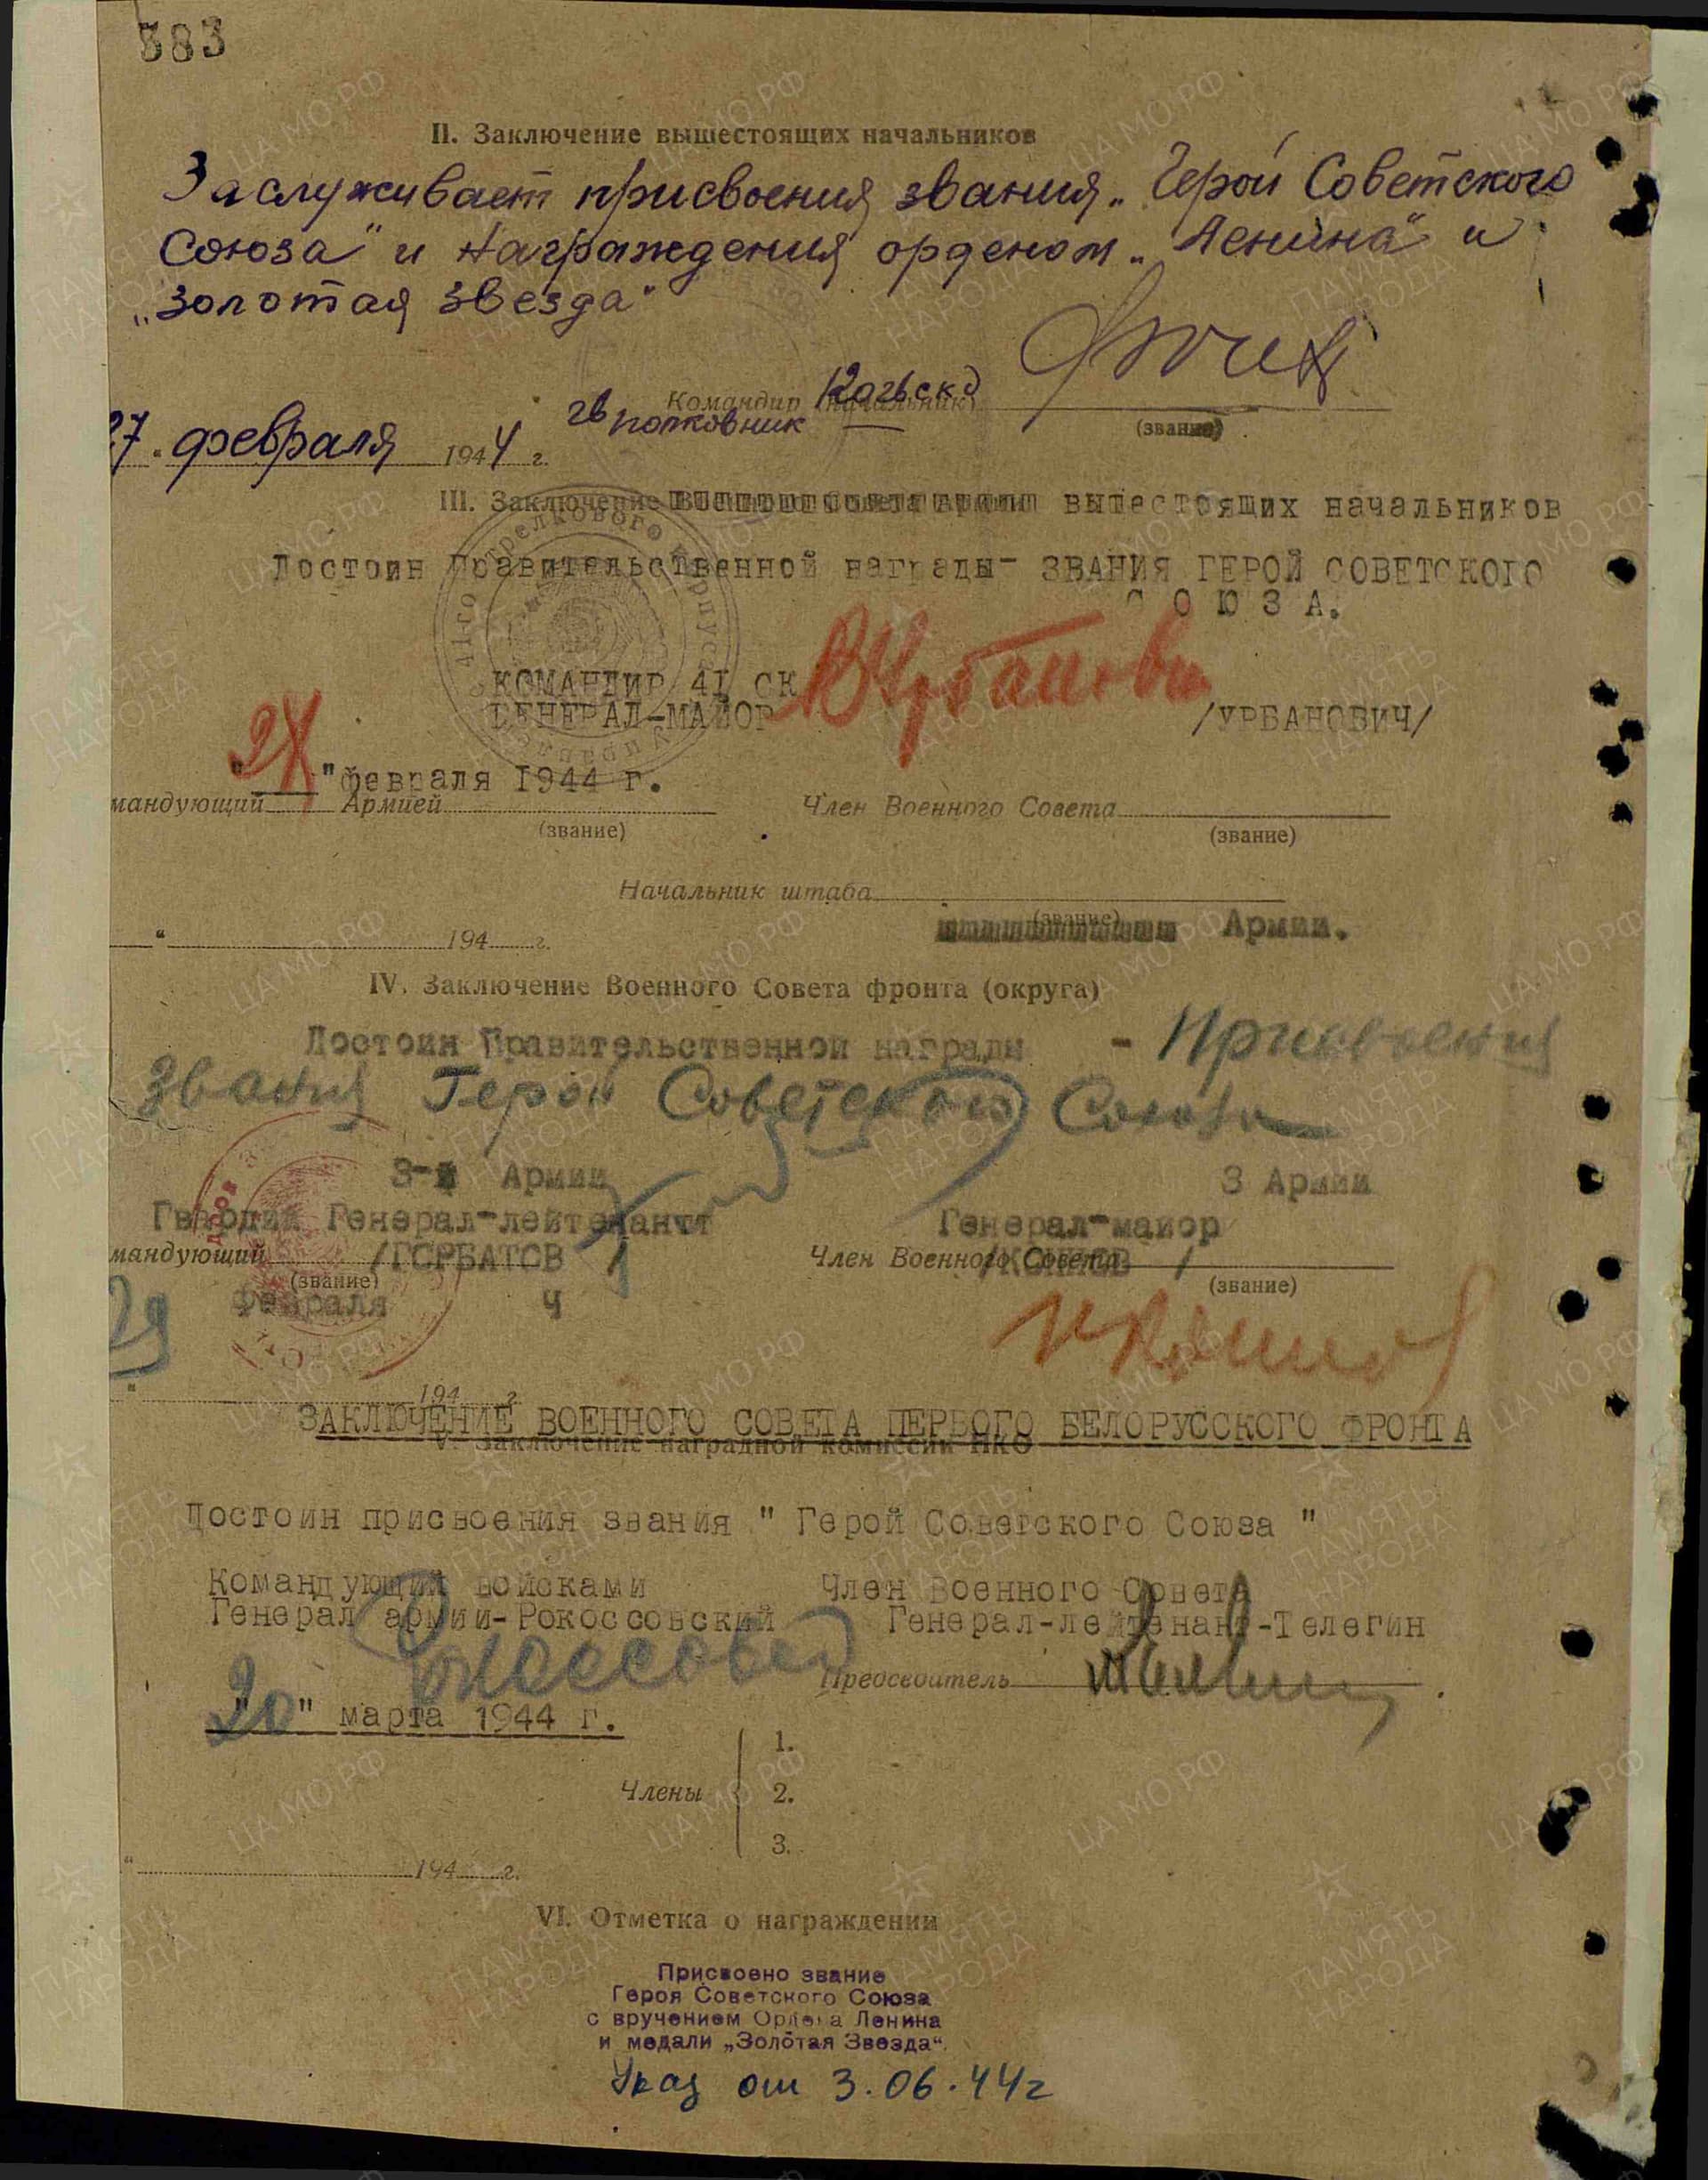 383
II. Заключение вышестоящих начальников
Заслуживает присвоения звания „Герой Советского
Союза" и награждения орденом „Ленина" и
„Золотая звезда"
Командир (начальник)
гв полковник
(звание)
27 " февраля 1944 г.
III. Заключение вышестоящих начальников
Достоин Правительственной награды- ЗВАНИЯ ГЕРОЙ СОВЕТСКОГО
СОЮЗА.
КОМАНДИР 41 СК
ГЕНЕРАЛ-МАЙОР /УРБАНОВИЧ/
" " февраля 1944 г.
мандующий Армией Член Военного Совета
(звание) (звание)
Начальник штаба
(звание) Армии.
" 194 г.
IV. Заключение Военного Совета фронта (округа)
Достоин Правительственной награды - Присвоения
звания Герой Советского Союза
3-й Армии 3 Армии
Гвардии Генерал-лейтенант Генерал-майор
мандующий /ГОРБАТОВ / Член Военного Совета
(звание) (звание)
29 февраля 4
" 194 г.
ЗАКЛЮЧЕНИЕ ВОЕННОГО СОВЕТА ПЕРВОГО БЕЛОРУССКОГО ФРОНТА
V. Заключение наградной комиссии НКО
Достоин присвоения звания " Герой Советского Союза "
Командующий войсками Член Военного Совета
Генерал армии-Рокоссовский Генерал-лейтенант-Телегин
Председатель
"20" марта 1944 г.
Члены
1.
2.
3.
" 194 г.
VI. Отметка о награждении
Присвоено звание
Героя Советского Союза
с вручением Ордена Ленина
и медали „Золотая Звезда".
Указ от 3.06.44г